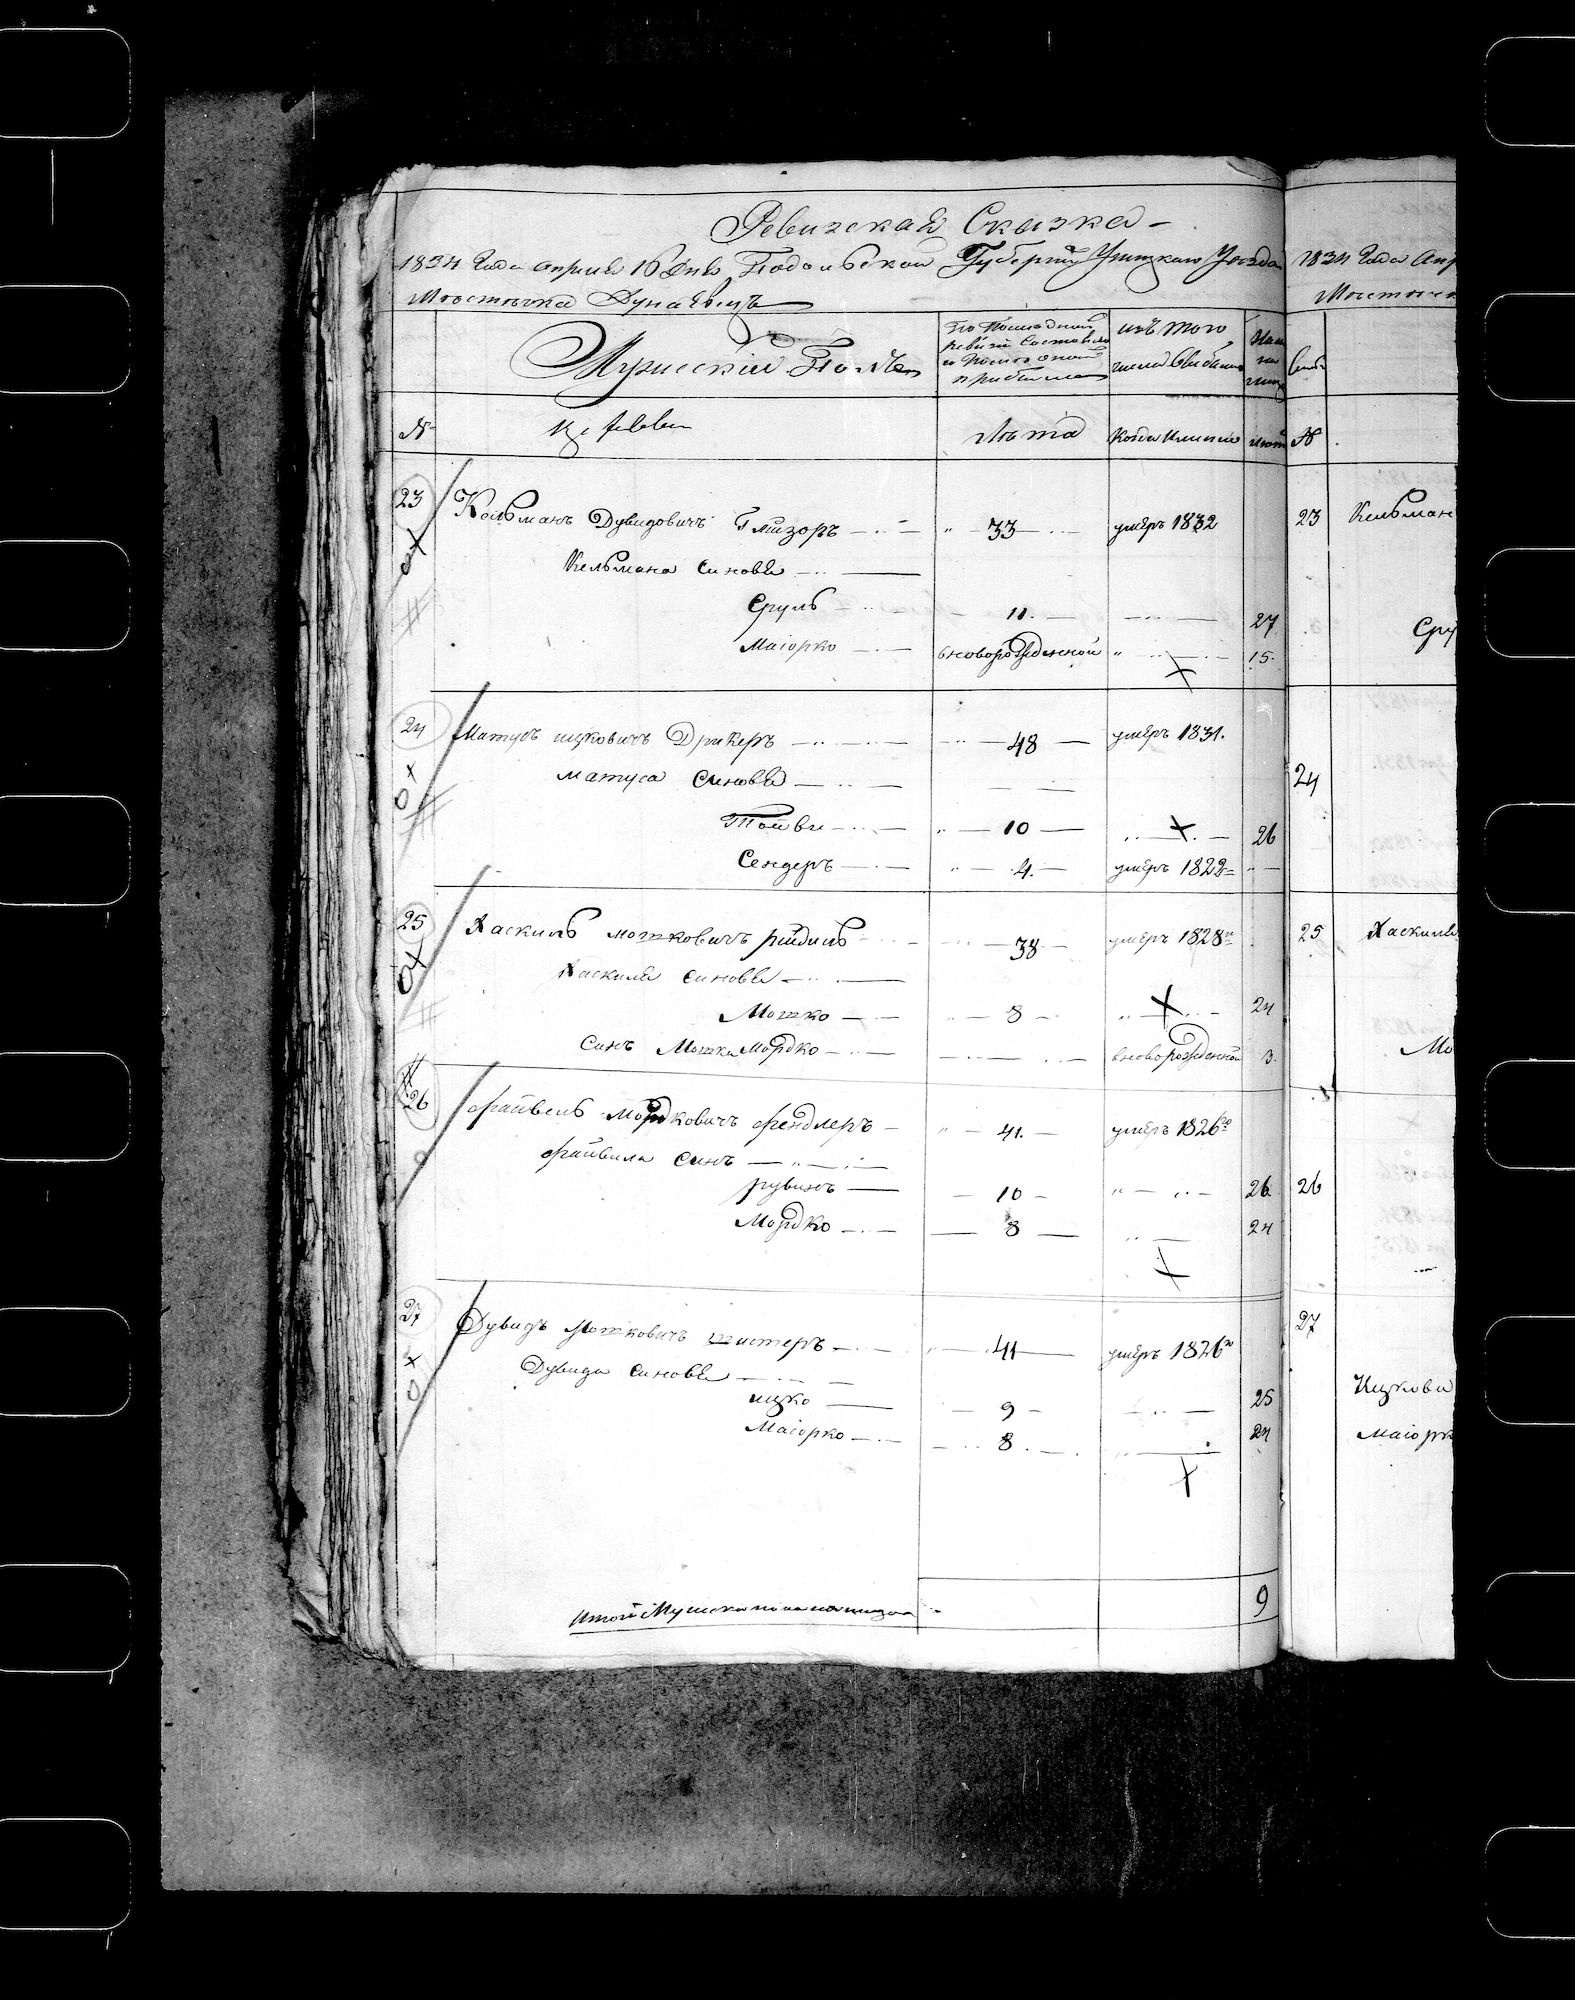 Ревизская Сказка
1834 Года апреля 16 Дня Подольской Губернии Ушицкаго Уезда
Местечка Дунаевецъ
Мужескій Полъ
По Последней ревизіи Состояло и После оной прибыло
изъ того числа Выбыло
Ныне на лицо
№
Евреи
Лета
Когда Именно
лета
23 Кельманъ Дувидовичъ Глизоръ 33 умеръ 1832
Кельмана синовья
Сруль 11. 27
Маіорко новорожденной 15.
24 Матусъ ицковичъ Дрикеръ 48 умеръ 1831.
матуса синовья
Тойви 10 26
Сендеръ 4. умеръ 1822
25 Хаскиль мошковичъ рейдиль 38 умеръ 1828
Хаскиля синовья
Мошко 8 24
синъ Мошка Мордко новорожденной 3.
26 файвель Мордковичъ френдлеръ 41. умеръ 1826го
файвиля синъ
рувинъ 10 26
Мордко 8 24
27 Дувидъ Мошковичъ шистеръ 41 умеръ 1826го
Дувида синовья
ицко 9 25
Маіорко 8. 24
Итого Мужеска пола на лицо 9
1834 Года Апр
Местечк
№
23 Кельман
Сру
24
25 Хаскиля
Мо
26
27
Ицкова
маіорк